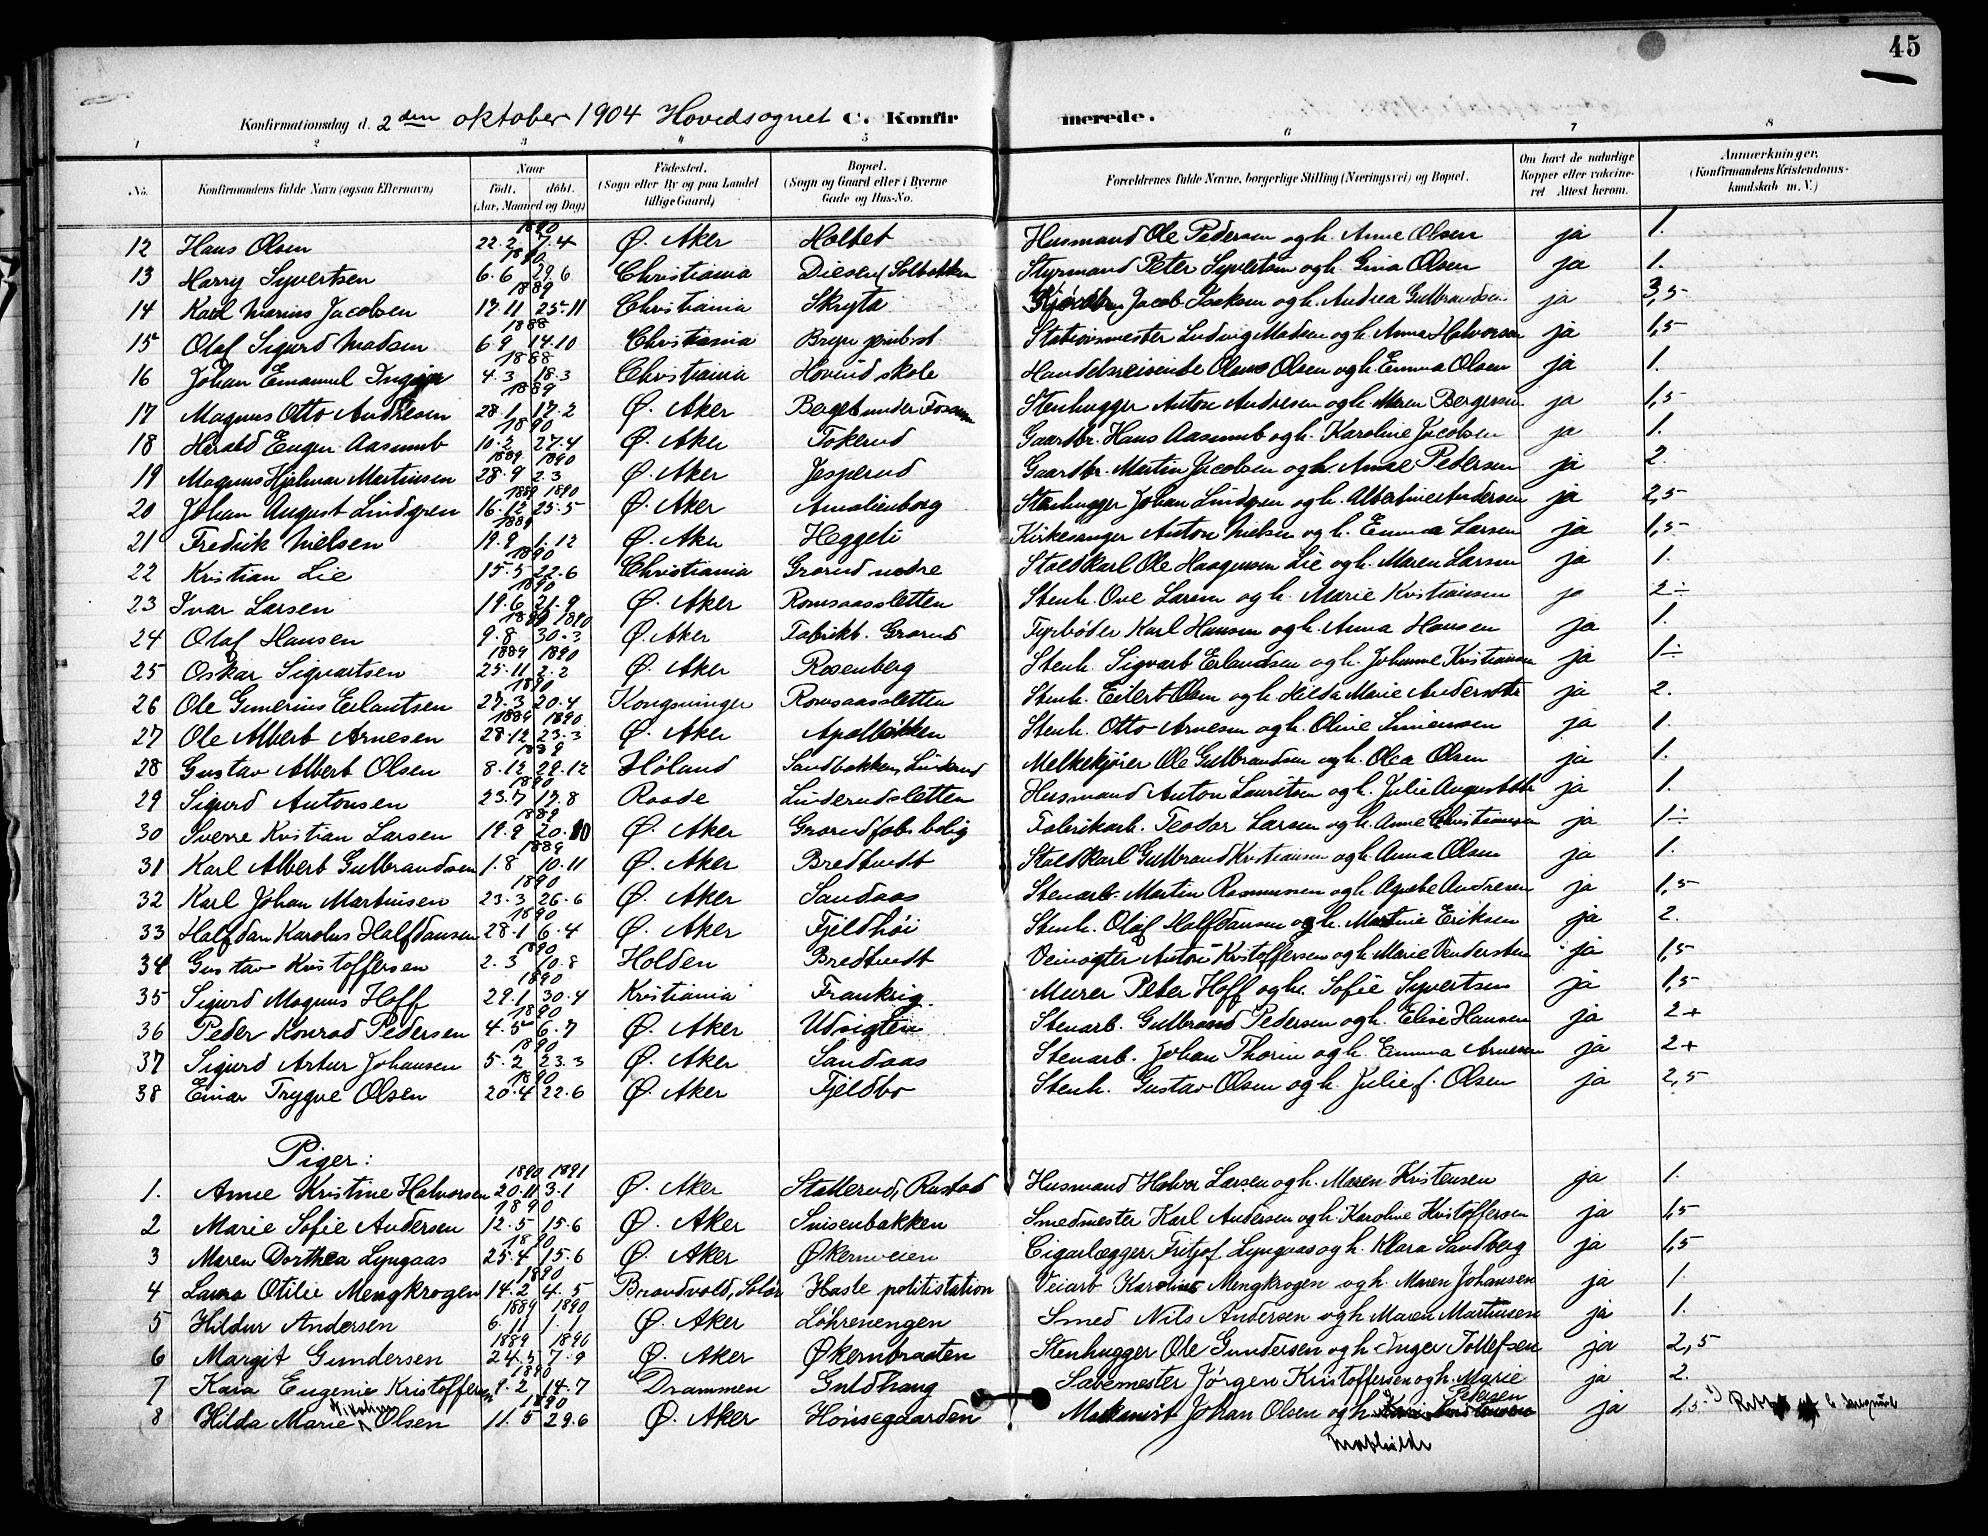 45
Konfirmationsdag d. 2den oktober 1904 Hovedsognet C. Konfirmerede.
1 2 3 4 5 6 7 8
No. Konfirmandens fulde Navn (ogsaa Efternavn) Naar født. døbt. (Aar, Maaned og Dag) Fødested. (Sogn eller By og paa Landet tillige Gaard) Bopæl. (Sogn og Gaard eller i Byerne Gade og Hus-No. Forældrenes fulde Navne, borgerlige Stilling (Næringsvei) og Bopæl. Om havt de naturlige Kopper eller vakcineret Attest herom. Anmærkninger. (Konfirmandens Kristendomskundskab m. V.)
12 Hans Olsen 22.2 1890 7.4 Ø. Aker Holtet Husmand Ole Pedersen og h. Anne Olsen ja 1.
13 Harry Syvertsen 6.6 1890 29.6 Christiania Diesen, Solbakken Styrmand Peter Syvertsen og h. Gina Olsen ja 1.
14 Karl Marius Jacobsen 17.11 1889 25.11 Christiania Skryta Jacob Isaksen og h. Andrea Gulbrandsen ja 3,5
15 Olaf Sigurd Madsen 6.9 1888 14.10 Christiania Bryn Stationsmester Ludvig Madsen og h. Anna Halvorsen ja 1,5
16 Johan Emanuel 4.3 1888 18.3 Christiania Hovind skole Handelsreisende Olsen og h. Emma Olsen ja 1.
17 Magnus Otto Andresen 28.1 1889 17.2 Ø. Aker Berget under Stenhugger Anton Andresen og h. Maren Bergersen ja 1,5
18 Harald Eugen Aasumb 10.2 1890 27.4 Ø. Aker Tokerud Gaardbr. Hans Aasumb og h. Karoline Jacobsen ja 1.
19 Magnus Hjalmar Martinsen 28.9 1889 2.3 1890 Ø. Aker Jesperud Gaardbr. Martin Jacobsen og h. Anne Pedersen ja 2.
20 Johan August Lindgren 16.12 1889 25.5 1890 Ø. Aker Amalienborg Stenhugger Johan Lindgren og h. Albertine Andersen ja 2,5
21 Fredrik Nielsen 19.9 1889 1.12 Ø. Aker Heggeli Kirkesanger Anton Nielsen og h. Emma Larsen ja 1,5
22 Kristian Lie 15.5 1890 22.6 Christiania Grorud nedre Staldkarl Ole Haagensen Lie og h. Maren Larsen ja 1.
23 Ivar Larsen 19.6 1890 21.9 Ø. Aker Romsaassletten Stenh. Ove Larsen og h. Marie Kristiansen ja 2÷
24 Olaf Hansen 9.8 1889 30.3 1890 Ø. Aker Fabrikb. Grorud Fyrbøder Karl Hansen og h. Anna Hansen ja 1.
25 Oskar Sigvartsen 25.11 1889 2.2 1890 Ø. Aker Rosenberg Stenh. Sigvart Erlandsen og h. Johanne Kristiansen ja 1÷
26 Ole Gunerius Eilertsen 27.3 1890 20.4 Kongsvinger Romsaassletten Stenh. Eilert Olsen og h. Hilda Marie Andersdtr ja 2.
27 Ole Albert Arnesen 28.12 1889 23.3 1890 Ø. Aker Apalløkken Stenh. Otto Arnesen og h. Oline Simensen ja 1.
28 Gustav Albert Olsen 8.12 1889 29.12 Høland Sandbakken, Linderud Melkekjører Ole Gulbrandsen og h. Olea Olsen ja 1.
29 Sigurd Antonsen 23.7 1890 17.8 Raade Linderudsletten Husmand Anton Lauritsen og h. Julie ja 1.
30 Sverre Kristian Larsen 19.9 1889 20.10 Ø. Aker Grorud fab. bolig Fabrikarb. Teodor Larsen og h. Anne Christiansen ja 1÷
31 Karl Albert Gulbrandsen 1.8 1889 10.11 Ø. Aker Bredtvedt Staldkarl Gulbrand Kristiansen og h. Anna Olsen ja 1.
32 Karl Johan Martinsen 23.3 1890 26.6 Ø. Aker Sandaas Stenarb. Martin Rasmussen og h. Agnethe Andresen ja 1,5
33 Halfdan Karolus Halfdansen 28.1 1890 6.4 Ø. Aker Fjeldhøi Stenh. Olaf Halfdansen og h. Martine Eriksen ja 2.
34 Gustav Kristoffersen 2.3 1890 10.8 Holden Bredtvedt Veivogter Anton Kristoffersen og h. Marie ja 1,5
35 Sigurd Magnus Hoff 29.1 1890 30.4 Kristiania Frankrig Murer Peter Hoff og h. Sofie Syvertsen ja 1,5
36 Peder Konrad Pedersen 4.5 1890 6.7 Ø. Aker Udsigten Stenarb. Gulbrand Pedersen og h. Elise Hansen ja 2+
37 Sigurd Artur Johansen 5.2 1890 23.3 Ø. Aker Sandaas Stenarb. Johan Thorin og h. Emma Arnesen ja 2+
38 Einar Trygve Olsen 20.4 1890 22.6 Ø. Aker Fjeldbo Stenh. Gustav Olsen og h. Julie f. Olsen ja 2,5
Piger:
1. Anne Kristine Halvorsen 20.11 1890 3.1 1891 Ø. Aker Stallerud, Rustad Husmand Halvor Larsen og h. Maren Kristensen ja 1.
2 Marie Sofie Andersen 12.5 1890 15.6 Ø. Aker Snisenbakken Smedmester Karl Andersen og h. Karoline Kristoffersen ja 1,5
3 Maren Dorthea Lyngaas 25.4 1890 15.6 Ø. Aker Økernveien Cigarlægger Fritjof Lyngaas og h. Klara Sandberg ja 1,5
4 Laura Otilie Mengkrogen 14.2 1890 4.5 Brandvold, Solør Hasle politistation Veiarb Mengkrogen og h. Maren Johansen ja 1.
5 Hildur Andersen 6.11 1889 1.1 1890 Ø. Aker Løhrenengen Smed Nils Andersen og h. Maren Martinsen ja 1.
6 Margit Gundersen 24.5 1889 7.9 1890 Ø. Aker Økernbraaten Stenhugger Ole Gundersen og h. Inger Tollefsen ja 2,5
7 Kara Eugenie Kristoffersen 9.2 1890 14.7 Drammen Guldhaug Savemester Jørgen Kristoffersen og h. Marie Pedersen ja 2.
8 Hilda Marie Olsen 11.5 1890 29.6 Ø. Aker Hønsegaarden Maskinist Johan Olsen og h. Mathilde ja 1,5